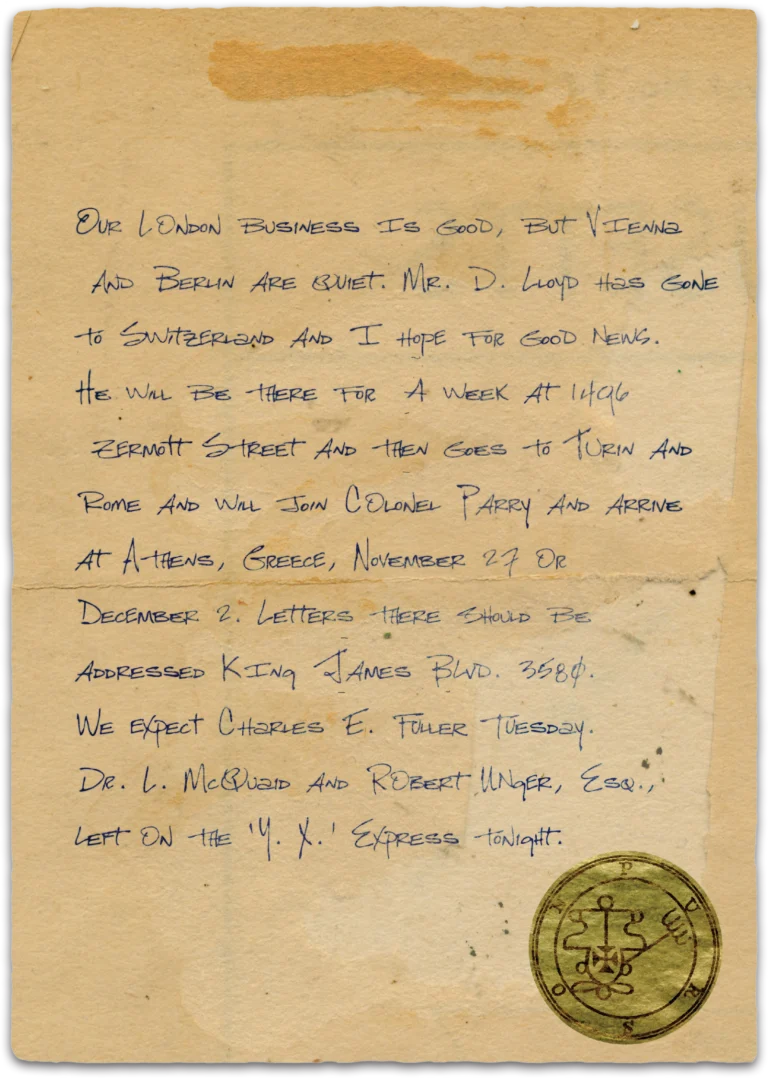 OUR LONDON BUSINESS IS GOOD, BUT VIENNA
AND BERLIN ARE QUIET. MR. D. LLOYD HAS GONE
TO SWITZERLAND AND I HOPE FOR GOOD NEWS.
HE WILL BE THERE FOR A WEEK AT 1496
ZERMOTT STREET AND THEN GOES TO TURIN AND
ROME AND WILL JOIN COLONEL PARRY AND ARRIVE
AT ATHENS, GREECE, NOVEMBER 27 OR
DECEMBER 2. LETTERS THERE SHOULD BE
ADDRESSED KING JAMES BLVD. 3580.
WE EXPECT CHARLES E. FULLER TUESDAY.
DR. L. MCQUAID AND ROBERT UNGER, ESQ.,
LEFT ON THE 'Y. X.' EXPRESS TONIGHT.
PURSON